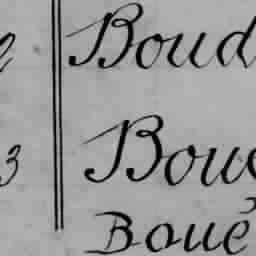 Boud
3 Bou
Boué